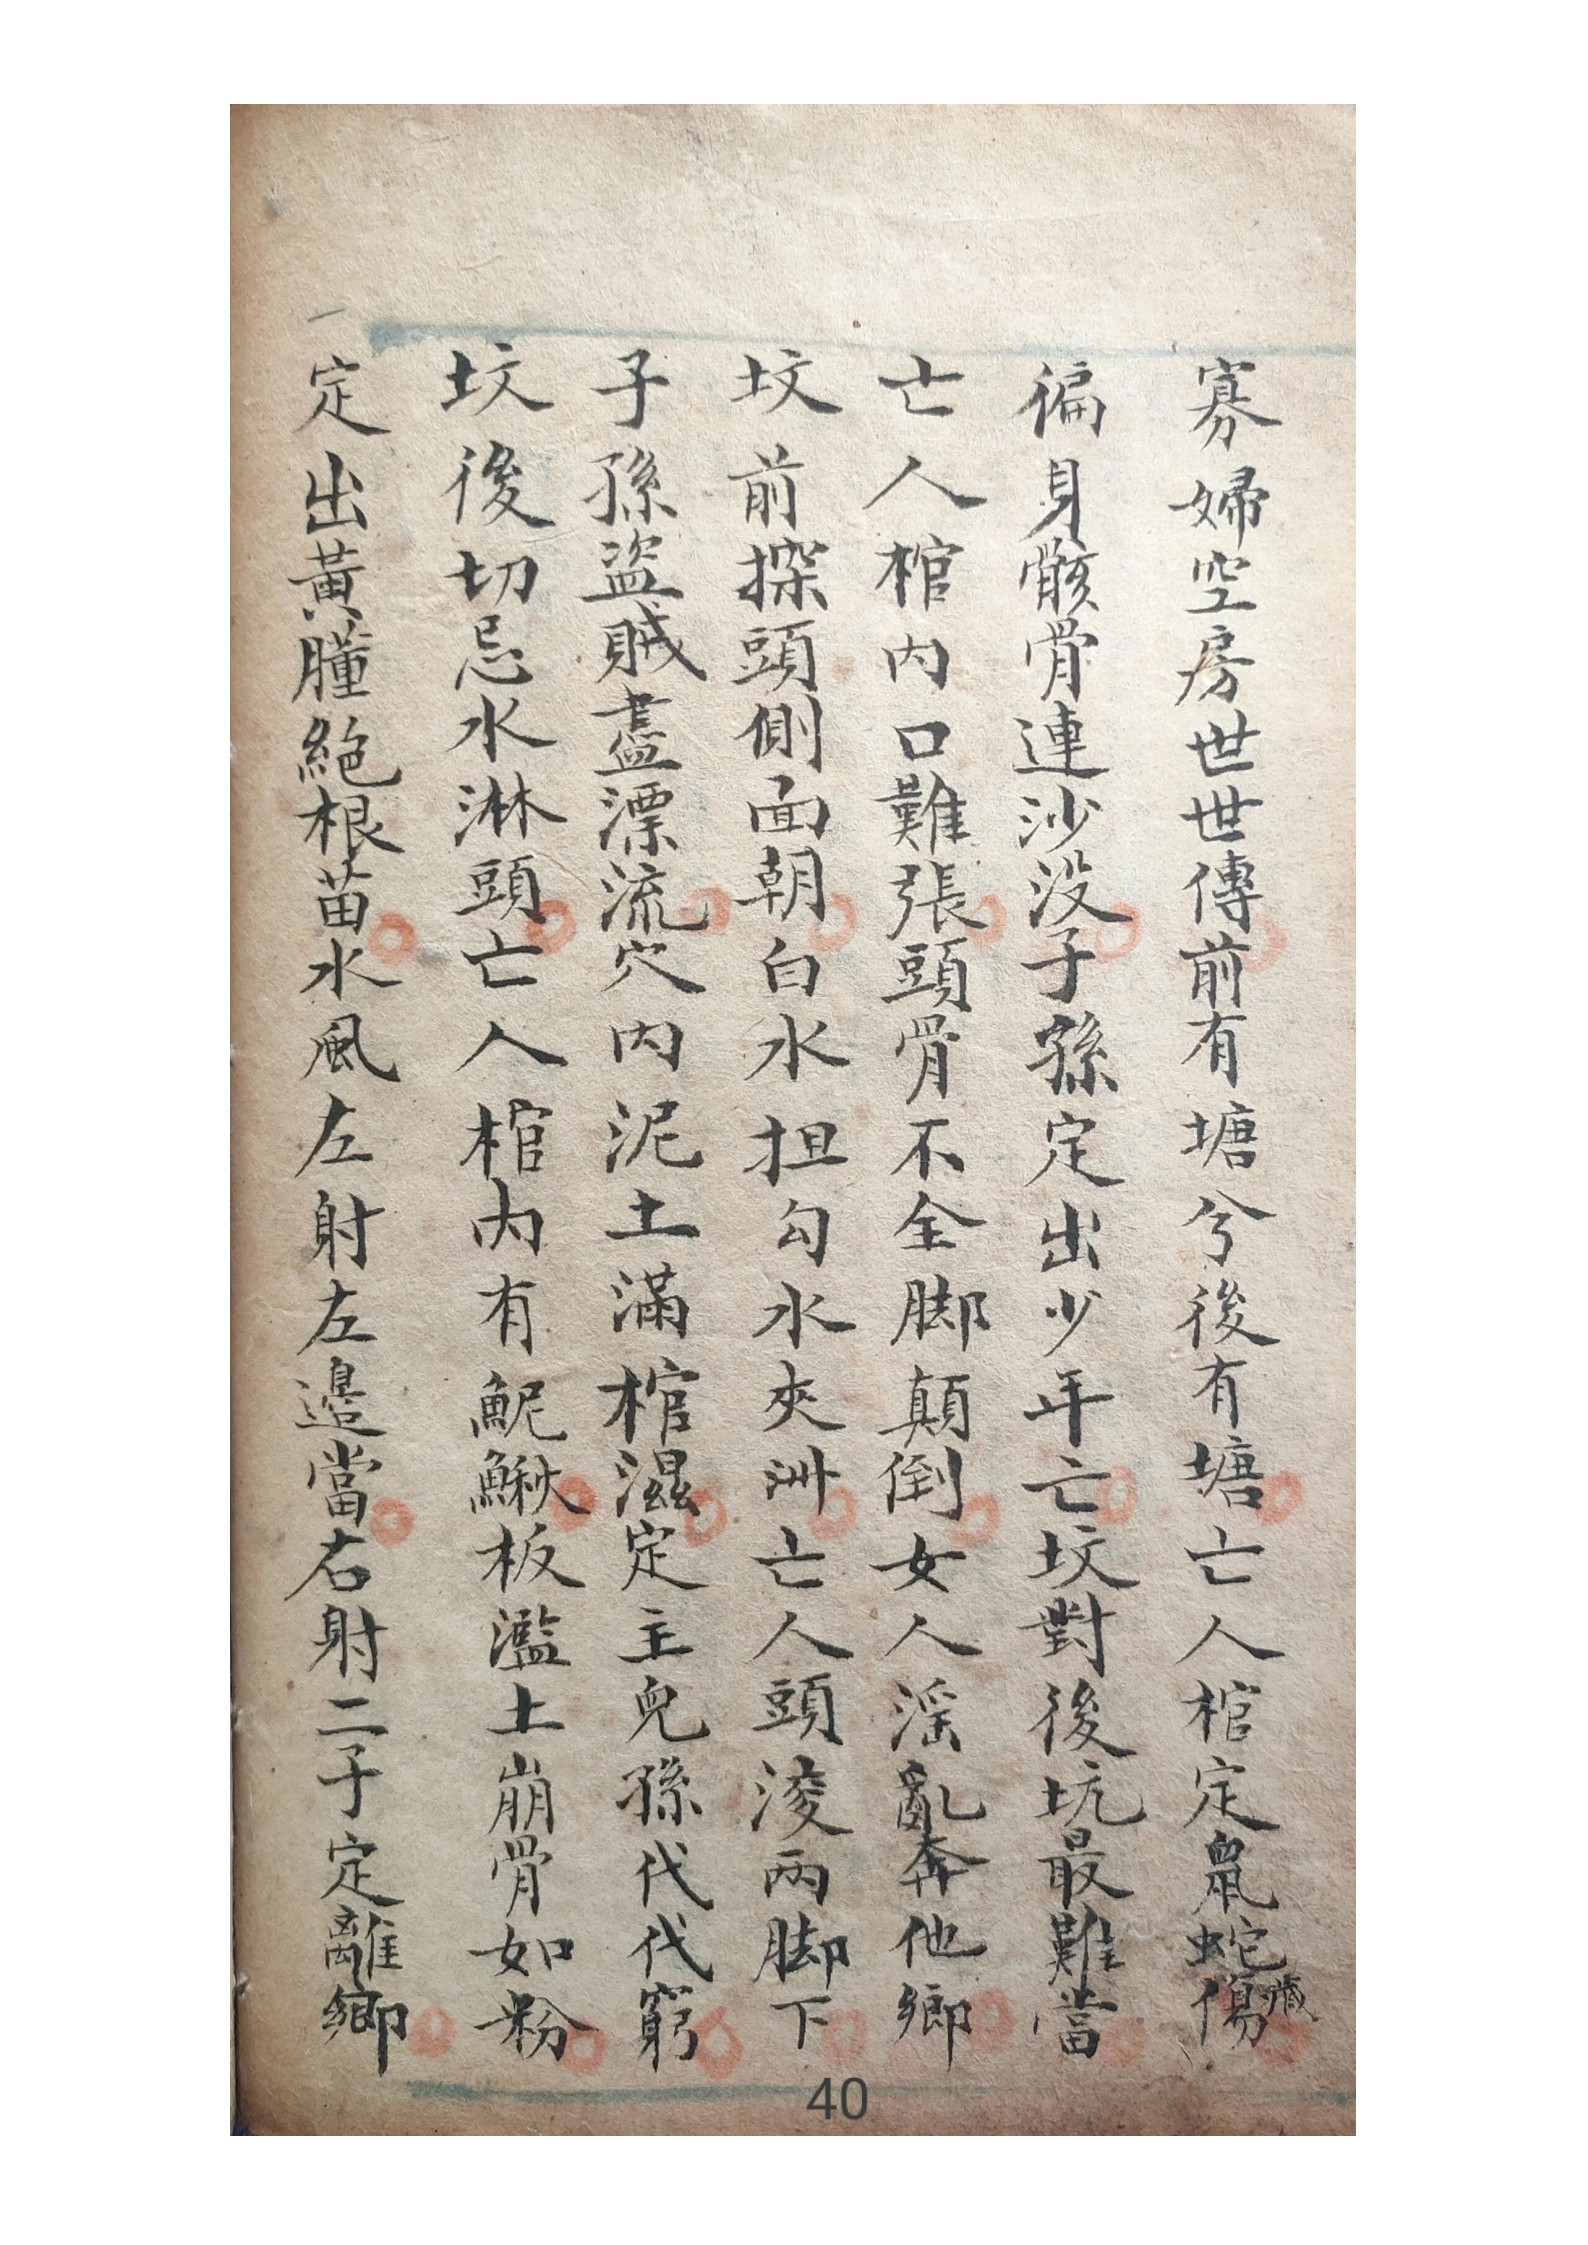 寡婦空房世世傳前有塘兮後有塘亡人棺定鼠蛇傷藏
徧身骸骨連沙没子孫定出少年亡坟對後坑最難當
亡人棺内口難張頭骨不全脚顛倒女人淫亂奔他鄉
坟前探頭側面朝白水担勾水夾洲亡人頭淩両脚下
子孫盗賊盡漂流穴内泥土滿棺濕定主兒孫代代窮
坟後切忌水淋頭亡人棺内有鮀鰍板濫土崩骨如粉
定出黃腫絕根苗水風左射左邊當右射二子定離鄉
40